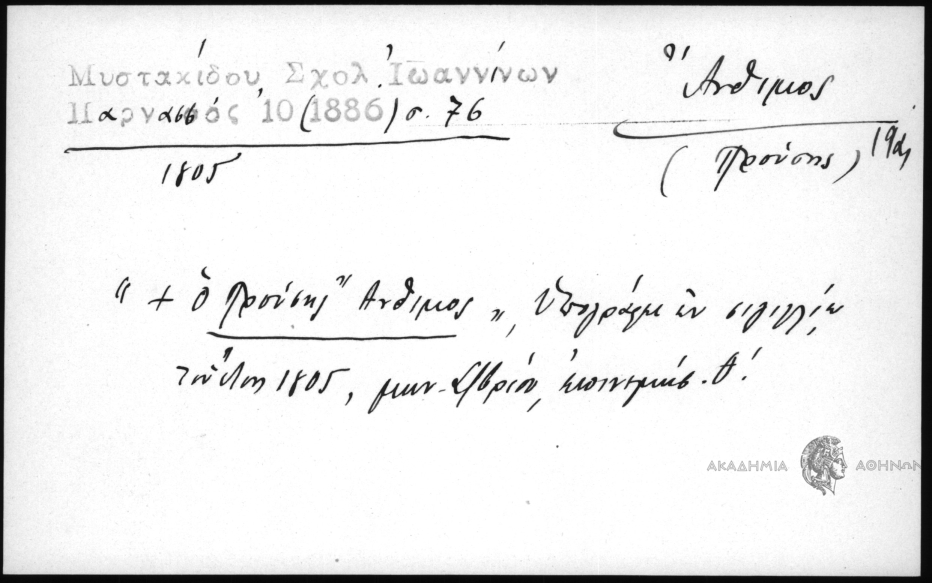 Μυστακίδου Σχολ. Ἰωαννίνων
Παρνασσός 10 (1886) σ. 76
1805
Ἄνθιμος
(Προύσης) 19ος
"+ ὁ Προύσης Ἄνθιμος", ὑπογράφει ἐν σιγιλλίῳ
τοῦ ἔτους 1805, μην. ἐπινεμήσ. θ'.
ΑΚΑΔΗΜΙΑ ΑΘΗΝΩΝ